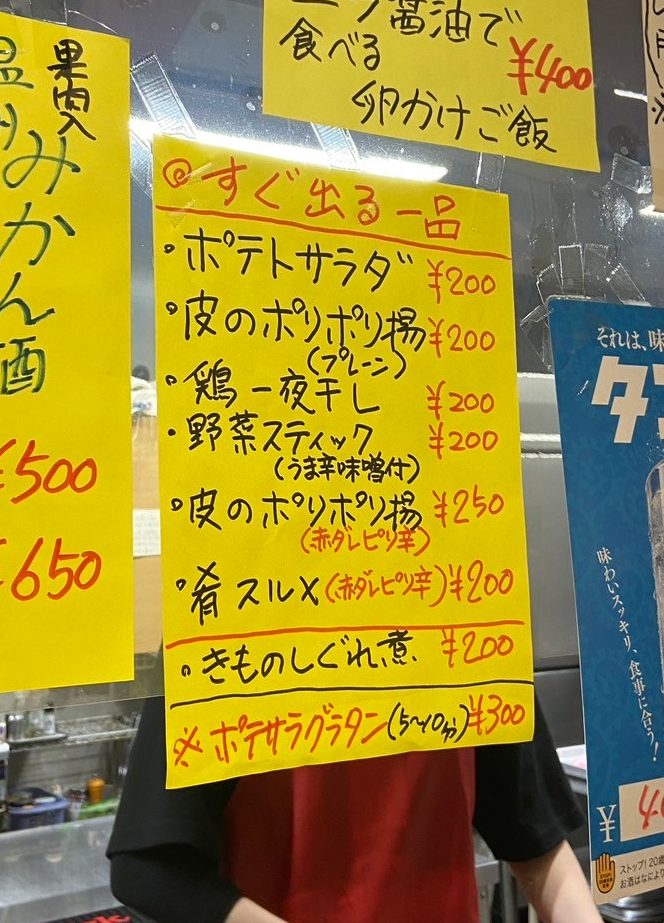 果肉入
みかん酒
500
650
醤油で
食べる
¥400
卵かけご飯
◎すぐ出る一品
・ポテトサラダ ¥200
・皮のポリポリ揚 ¥200
(プレーン)
・鶏一夜干し ¥200
・野菜スティック ¥200
(うま辛味噌付)
・皮のポリポリ揚 ¥250
(赤ダレピリ辛)
・肴スルメ(赤ダレピリ辛) ¥200
・きものしぐれ煮 ¥200
※ポテサラグラタン(5〜10分) ¥300
それは、味
タ
味わいスッキリ、食事に合う!
¥
ストップ!20歳
お酒はなにより